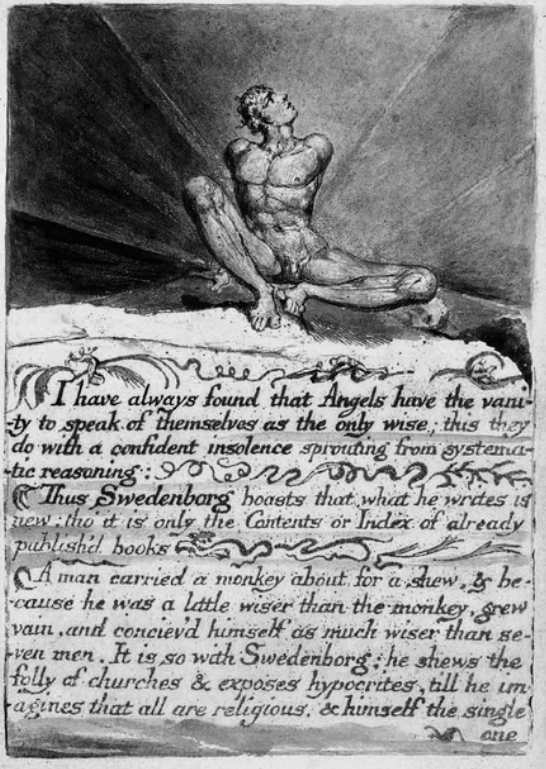 I have always found that Angels have the vani-
-ty to speak of themselves as the only wise; this they
do with a confident insolence sprouting from systema-
-tic reasoning:
Thus Swedenborg boasts that what he writes is
new; tho' it is only the Contents or Index of already
publish'd books
A man carried a monkey about for a shew, & be-
-cause he was a little wiser than the monkey, grew
vain, and conciev'd himself as much wiser than se-
-ven men. It is so with Swedenborg; he shews the
folly of churches & exposes hypocrites, till he im-
-agines that all are religious, & himself the single
one